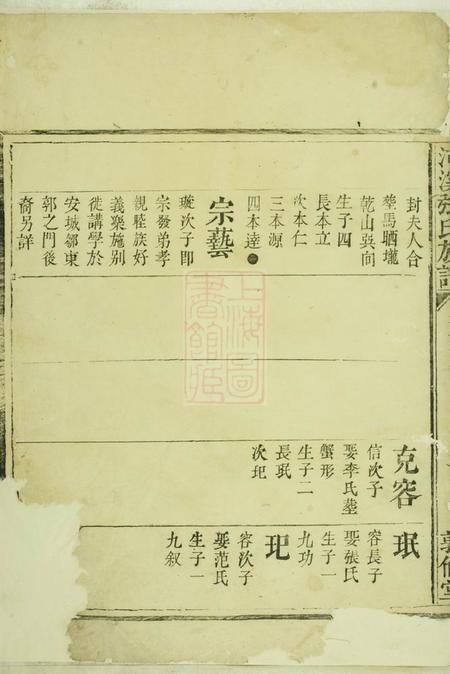 封夫人合
塟馬晒壠
乾山㒷向
生子四
長本立
次本仁
三本源
四本達
宗藝
璇次子即
宗發弟孝
親睦族好
義樂施别
徙講學於
安城鄒東
郭之門後
裔另詳
克容
信次子
娶李氏塟
蟹形
生子二
長珉
次玘
珉
容長子
娶張氏
生子一
九功
玘
容次子
娶范氏
生子一
九叙
上海圖
書館藏
張氏族譜
敦倫堂